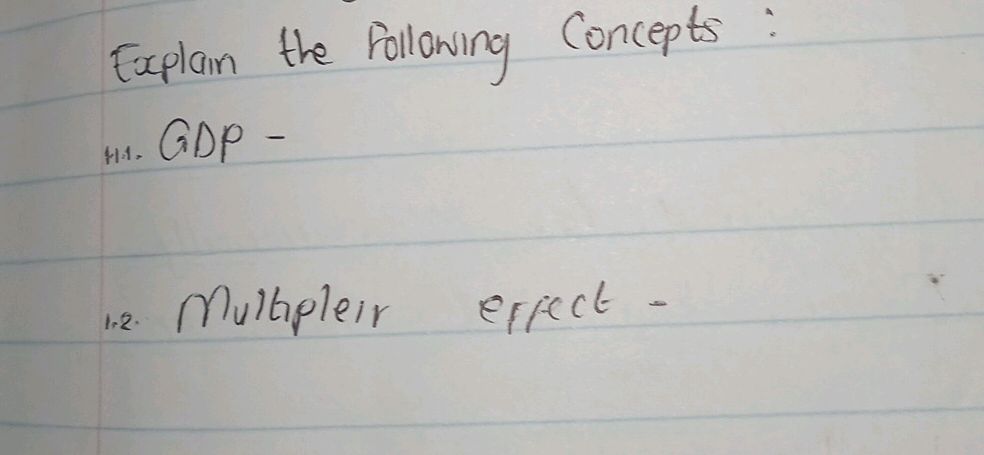 Explain the Following Concepts :
1.1. GDP -
1.2. Multipleir effect -